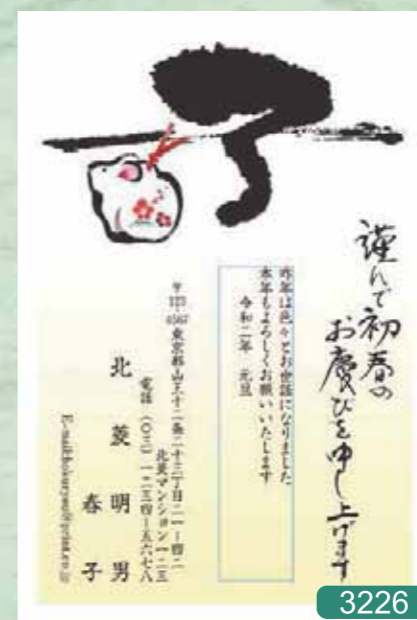 子
謹んで初春の
お慶びを申し上げます
昨年は色々とお世話になりました
本年もよろしくお願いいたします
令和二年 元旦
〒123-4567 東京都山王十二条二十三丁目二一-四二
北菱マンション一二三
電話(〇三)一二三四-五六七八
北菱明男
春子
3226